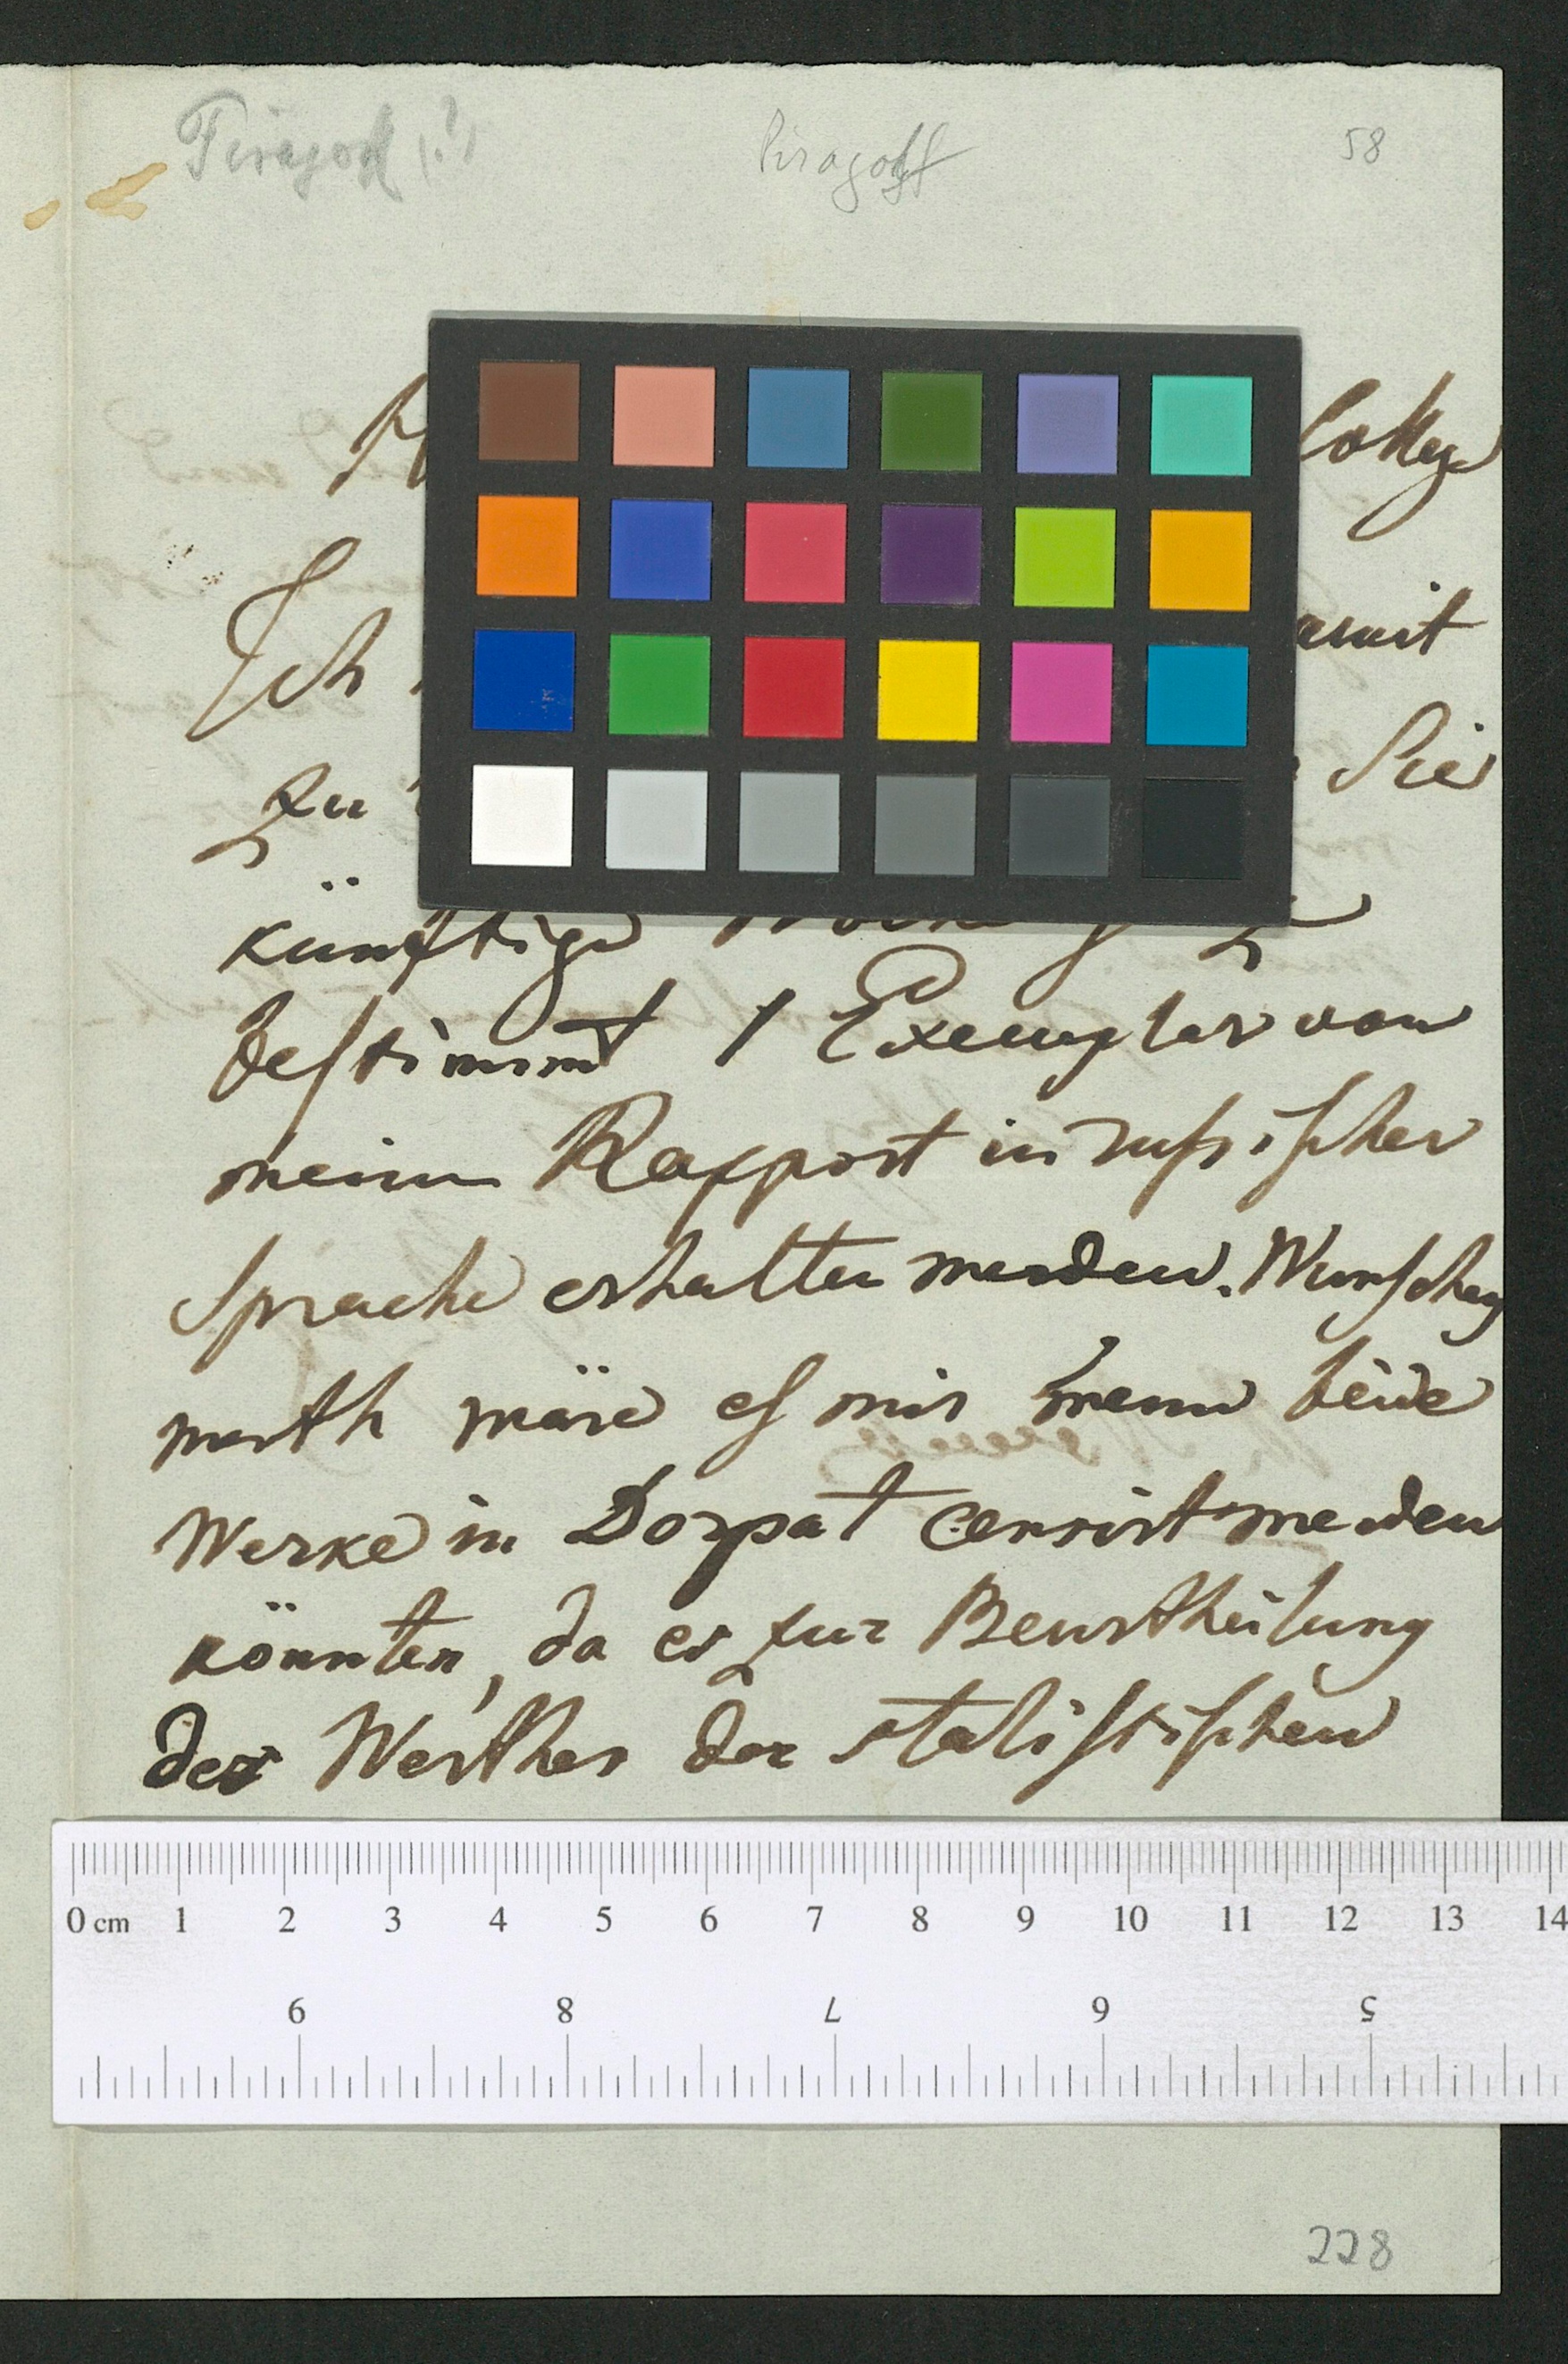 Piragoff (?) Piragoff 58
Ich
zu Sie
künftige
bestimmt 1 Exemplar von
meinem Rapport in russischer
Sprache erhalten werden. Wunschens
werth wäre es mir wenn beide
Werke in Dorpat censirt werden
könnten, da es zur Beurtheilung
des Werthes der statistischen
0 cm 1 2 3 4 5 6 7 8 9 10 11 12 13 14
9 8 7 6 5
228